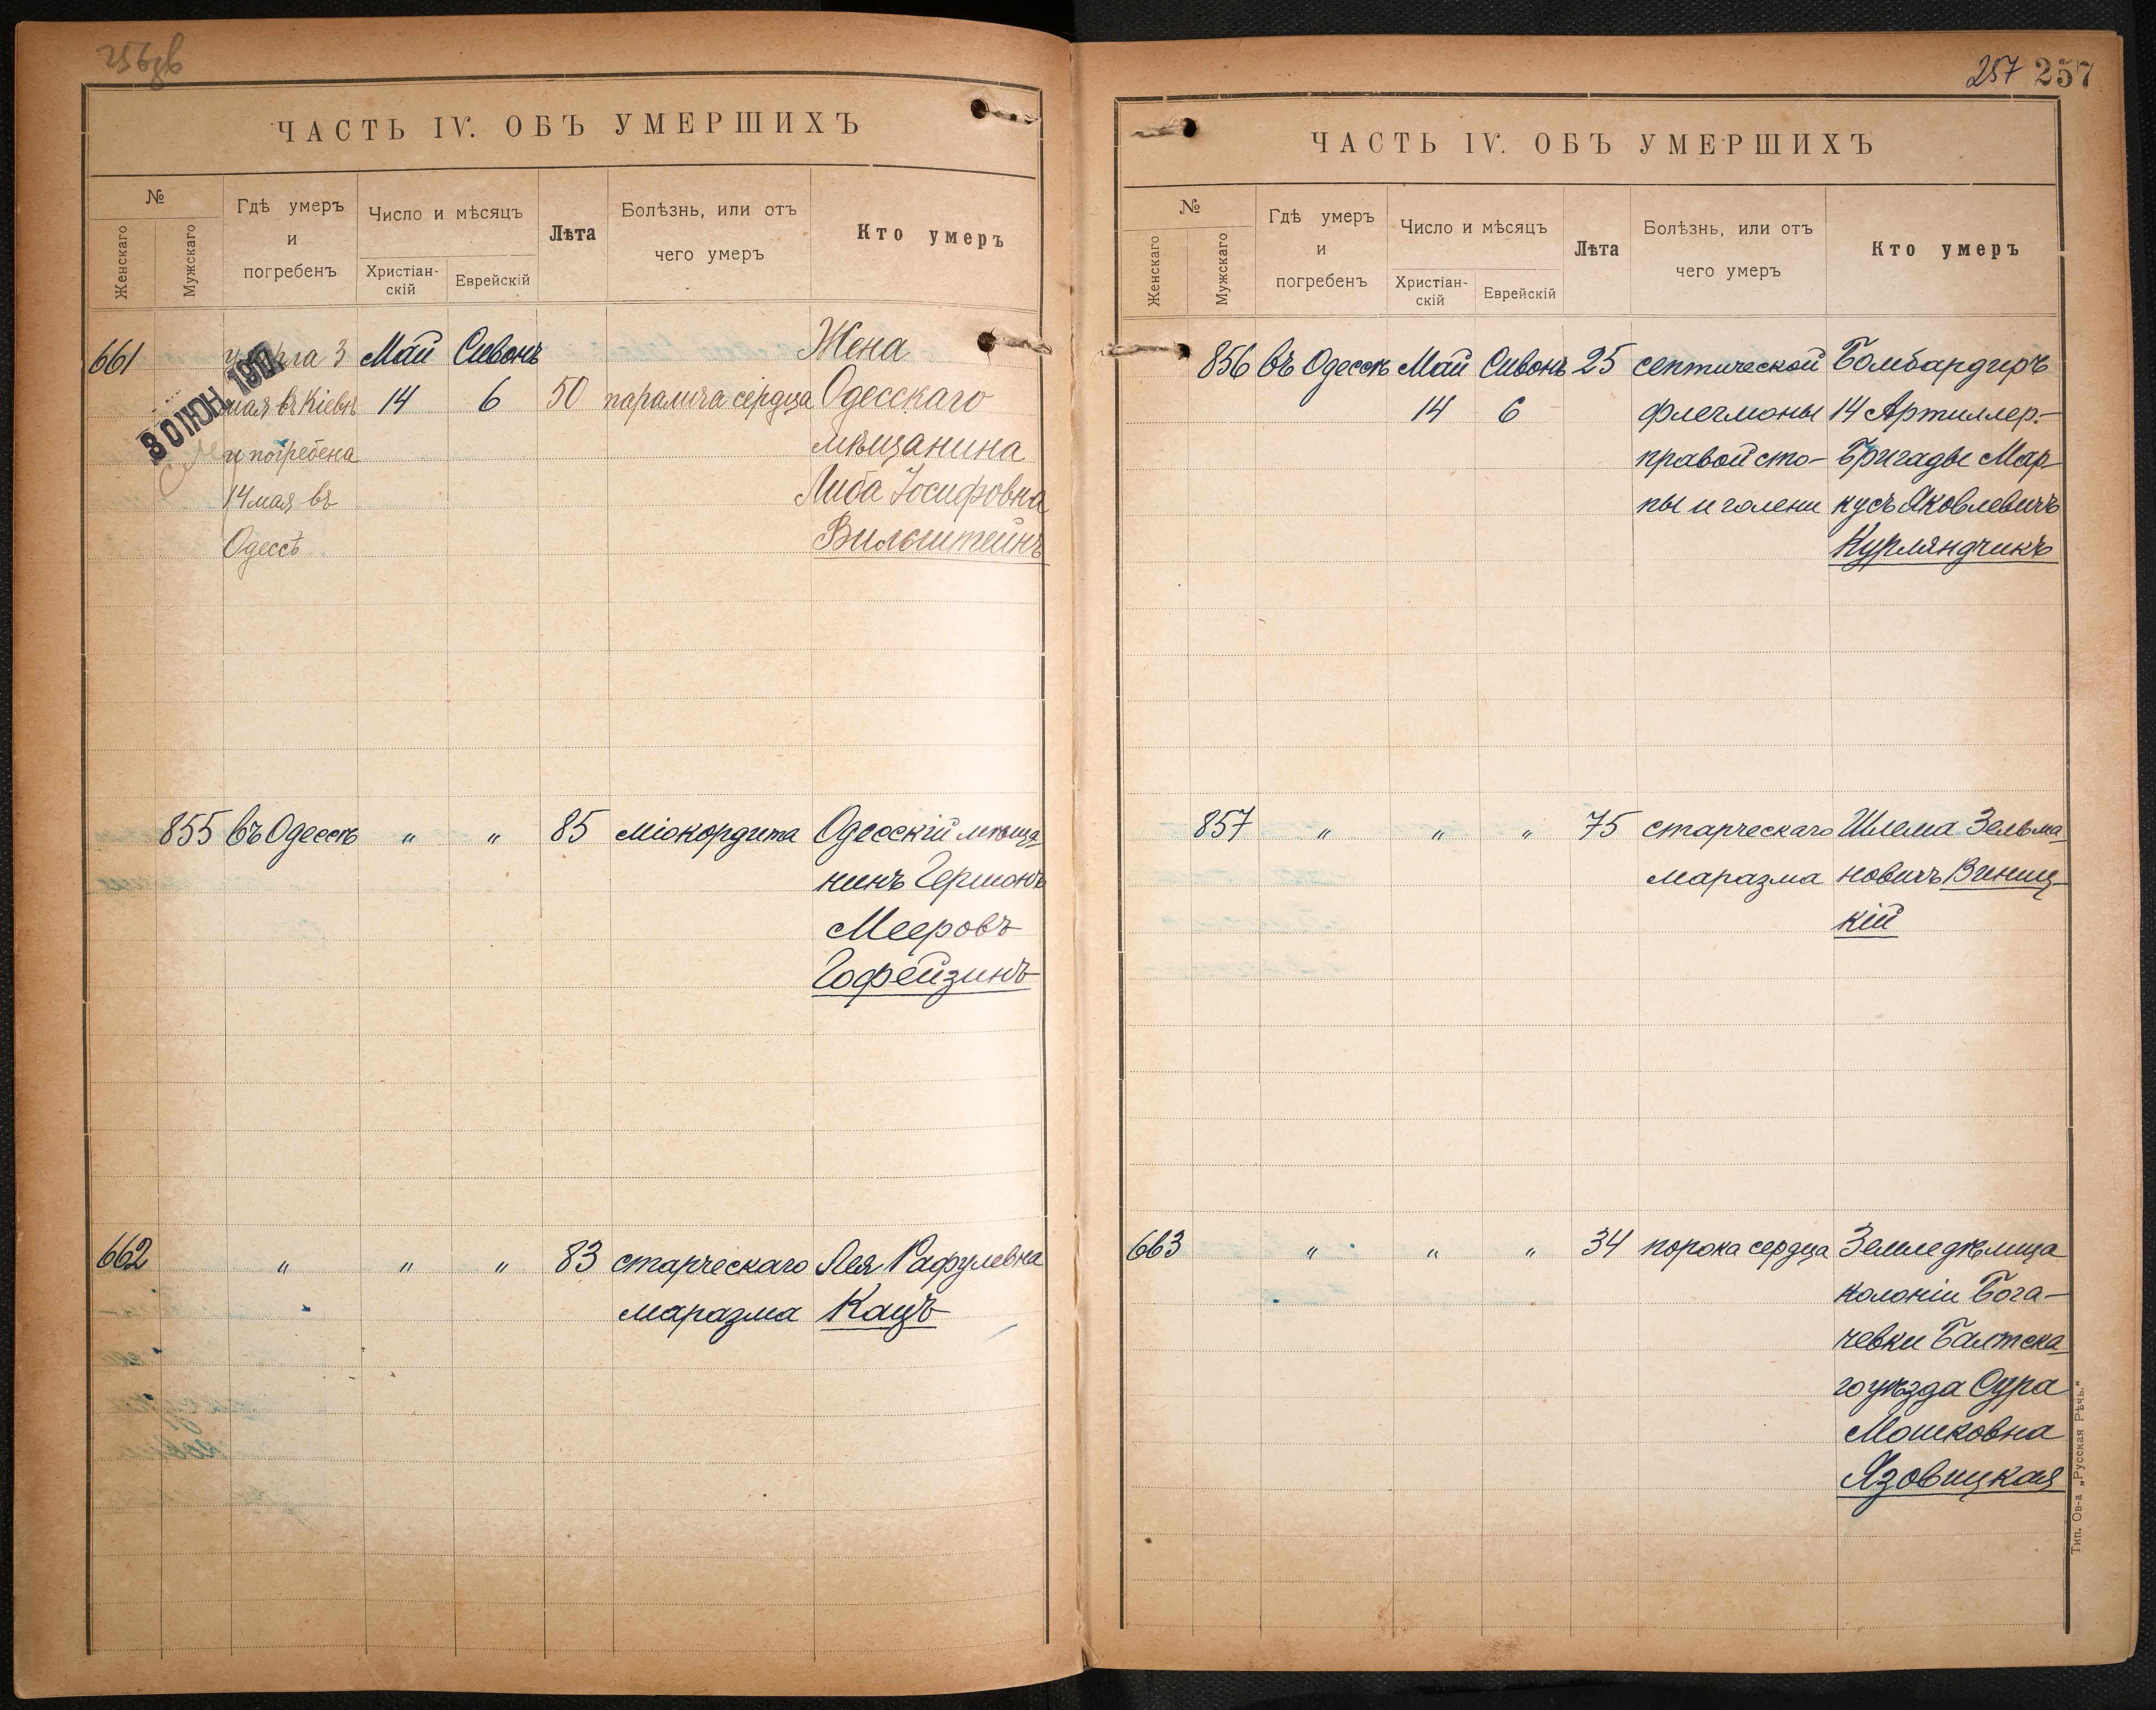 256об
ЧАСТЬ IV. ОБЪ УМЕРШИХЪ
№
Женскаго
Мужскаго
Гдѣ умеръ
и
погребенъ
Число и мѣсяцъ
Христіан-
скій
Еврейскій
Лѣта
Болѣзнь, или отъ
чего умеръ
Кто умеръ
30 ІЮН. 191
661 умерла 3 Май Сивонъ Жена
мая въ Кіевѣ 14 6 50 паралича сердца Одесскаго
и погребена мѣщанина
14 мая въ Либа Іосифовна
Одессѣ Вильштейнъ
855 въ Одессѣ " " 85 міокордита Одесскій мѣща
нинъ Гершонъ
Мееровъ
Гофейзинъ
662 " " " 83 старческаго Лея Рафулевна
маразма Кацъ
257 257
ЧАСТЬ IV. ОБЪ УМЕРШИХЪ
№
Женскаго
Мужскаго
Гдѣ умеръ
и
погребенъ
Число и мѣсяцъ
Христіан-
скій
Еврейскій
Лѣта
Болѣзнь, или отъ
чего умеръ
Кто умеръ
856 въ Одессѣ Май Сивонъ 25 септической Бомбардиръ
14 6 флегмоны 14 Артиллер.-
правой сто- Бригады Мар
пы и голени кусъ Яковлевичъ
Курляндчикъ
857 " " " 75 старческаго Шлема Зельма
маразма новичъ Виниц-
кій
663 " " " 34 порока сердца Земледѣлица
колоніи Бога-
чевки Балтска
го уѣзда Сура
Мошковна
Язовицкая
Тип. Ов-а „Русская Рѣчь.“